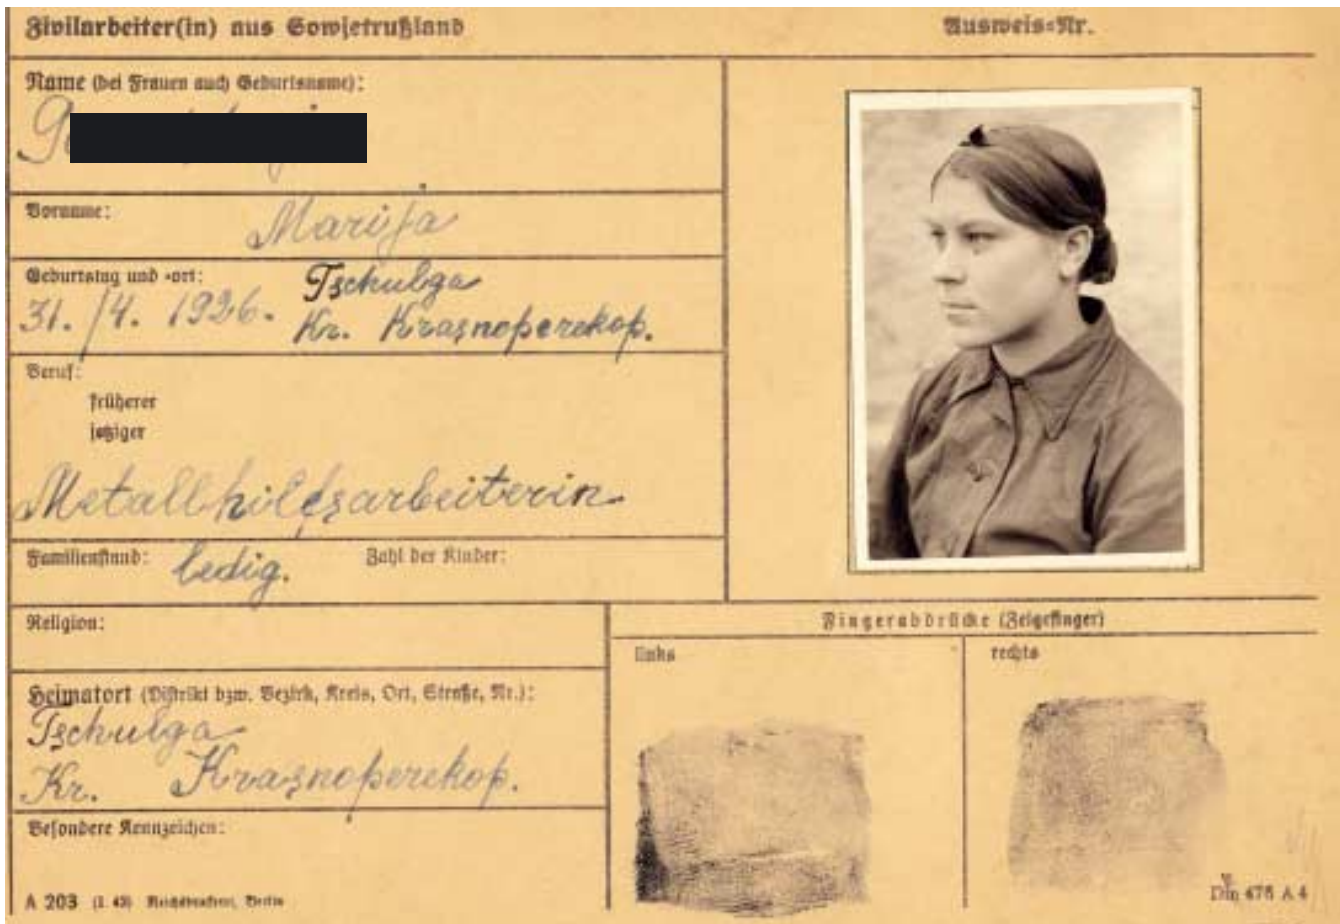 Zivilarbeiter(in) aus Sowjetrußland
Ausweis=Nr.
Name (bei Frauen auch Geburtsname):
Vorname:
Marija
Geburtstag und -ort:
31./4. 1926. Tschulga
Kr. Krasnoperekop.
Beruf:
früherer
jetziger
Metallhilfsarbeiterin
Familienstand: ledig. Zahl der Kinder:
Religion:
Heimatort (Distrikt bzw. Bezirk, Kreis, Ort, Straße, Nr.):
Tschulga
Kr. Krasnoperekop.
Besondere Kennzeichen:
A 203 (1. 43) Reichsdruckerei, Berlin
Fingerabdrücke (Zeigefinger)
links
rechts
Din 476 A 4